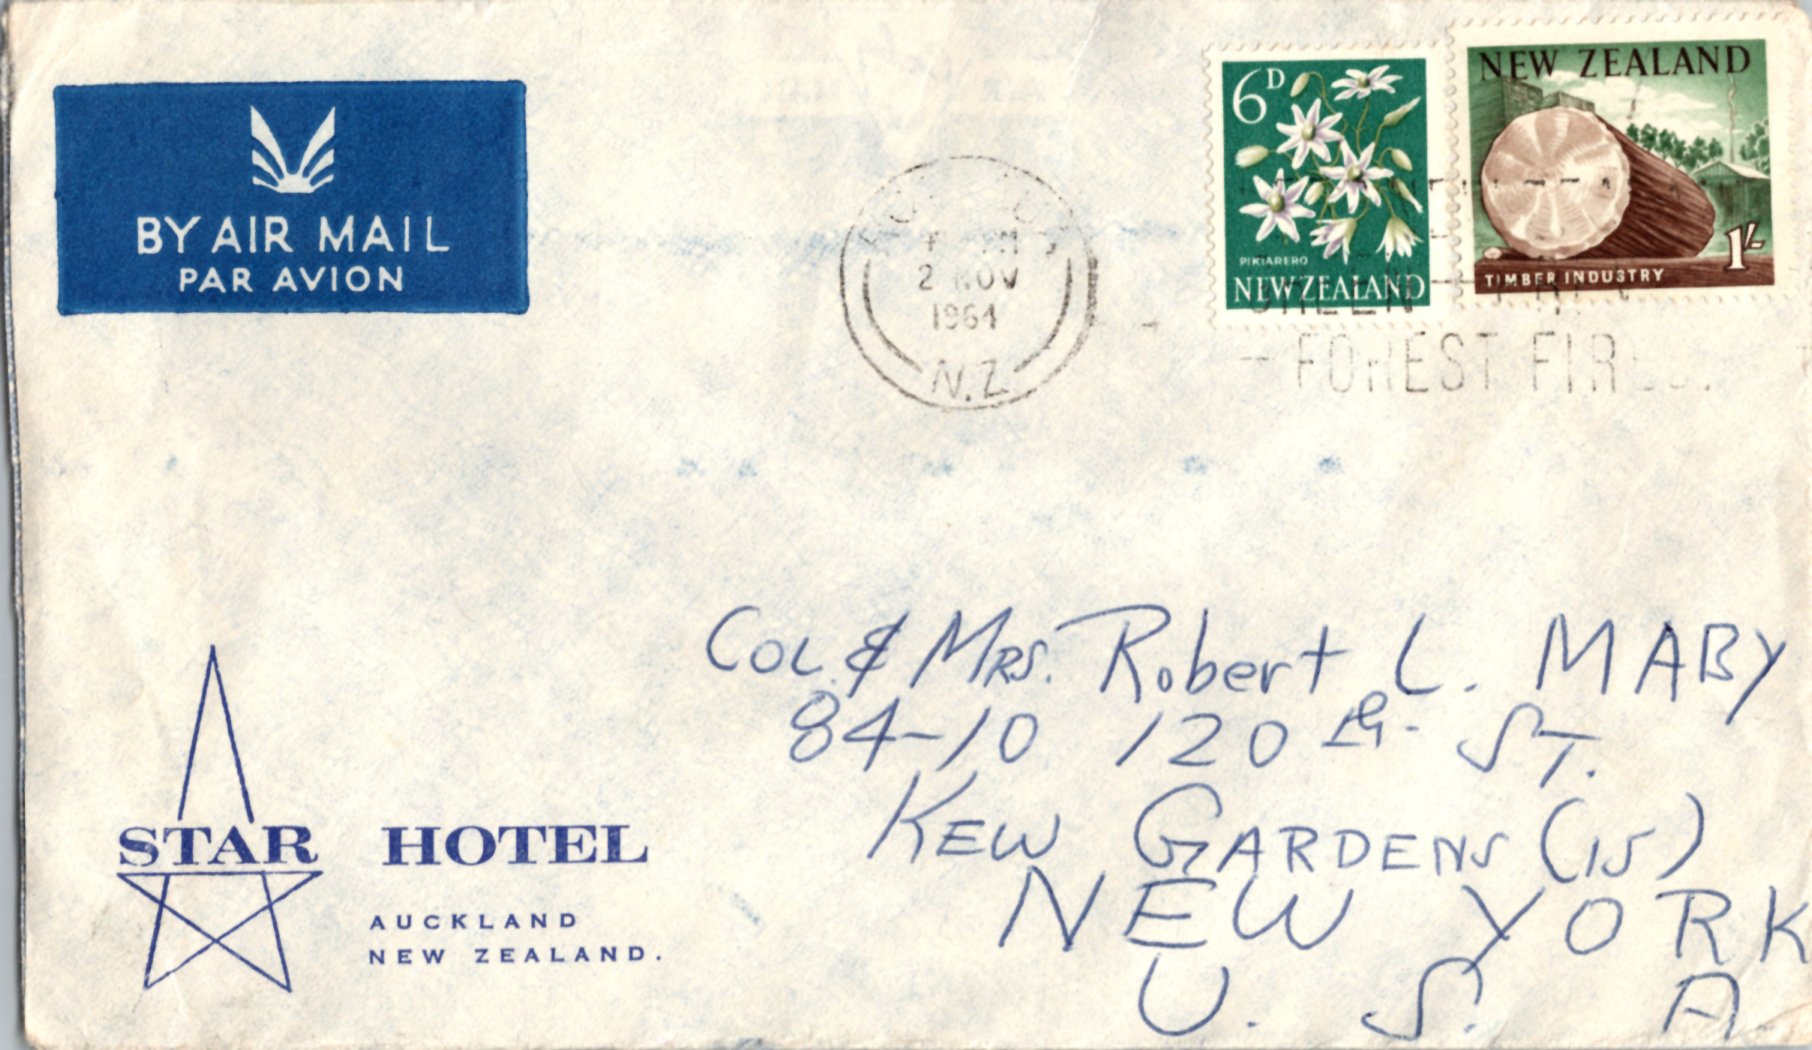 BY AIR MAIL
PAR AVION
2 NOV
1964
N.Z.
6D
PIKIARERO
NEW ZEALAND
NEW ZEALAND
1/-
TIMBER INDUSTRY
GREEN
FOREST FIRES.
COL. & MRS. Robert L. MABY
84-10 120th ST.
KEW GARDENS (15)
NEW YORK
U. S. A
STAR HOTEL
AUCKLAND
NEW ZEALAND.